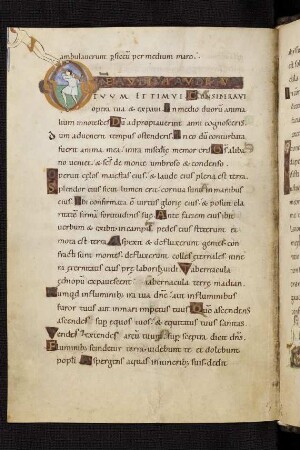 ambulauerunt p siccũ per medium maris.
TUUM ET TIMUI CONSIDERAVI
opera tua & expaui. In medio duorũ anima
lium innotesceris. Dũ adpropiauerint anni cognosceris.
dum aduenerit tempus ostenderis. In eo dũ conturbata
fuerit anima mea. in ira misericordie memor eris. Ds a liba
no ueniet. & scs de monte umbroso & condenso.
Operuit celos maiestas eius. & laude eius plena est terra.
Splendor eius sicut lumen erit. cornua sunt in manibus
eius. Ibi confirmata est uirtus glorie eius. & posuit cla
ritatẽ firmã fortitudinis suę. Ante faciem eius ibit
uerbum. & exibit in campis pedes eius. steterunt et
mota est terra. Aspexit & defluxerunt gentes. con
fracti sunt montes. defluxerunt colles eternales. iti
nera eternitatis eius pre laboribus uidit. Tabernacula
ethiopũ expauescent. tabernacula terre madian.
Numquid in fluminibus ira tua dne. aut in fluminibus
furor tuus. aut in mari impetus tuus. Quõ ascendens
ascendes sup equos tuos. & equitatus tuus sanitas.
Tendens extendes arcũ tuum sup sceptra dicit dns.
Fluminibus scindetur terra. uidebunt te et dolebunt
populi. Aspergens aquas in itineribus suis. dedit